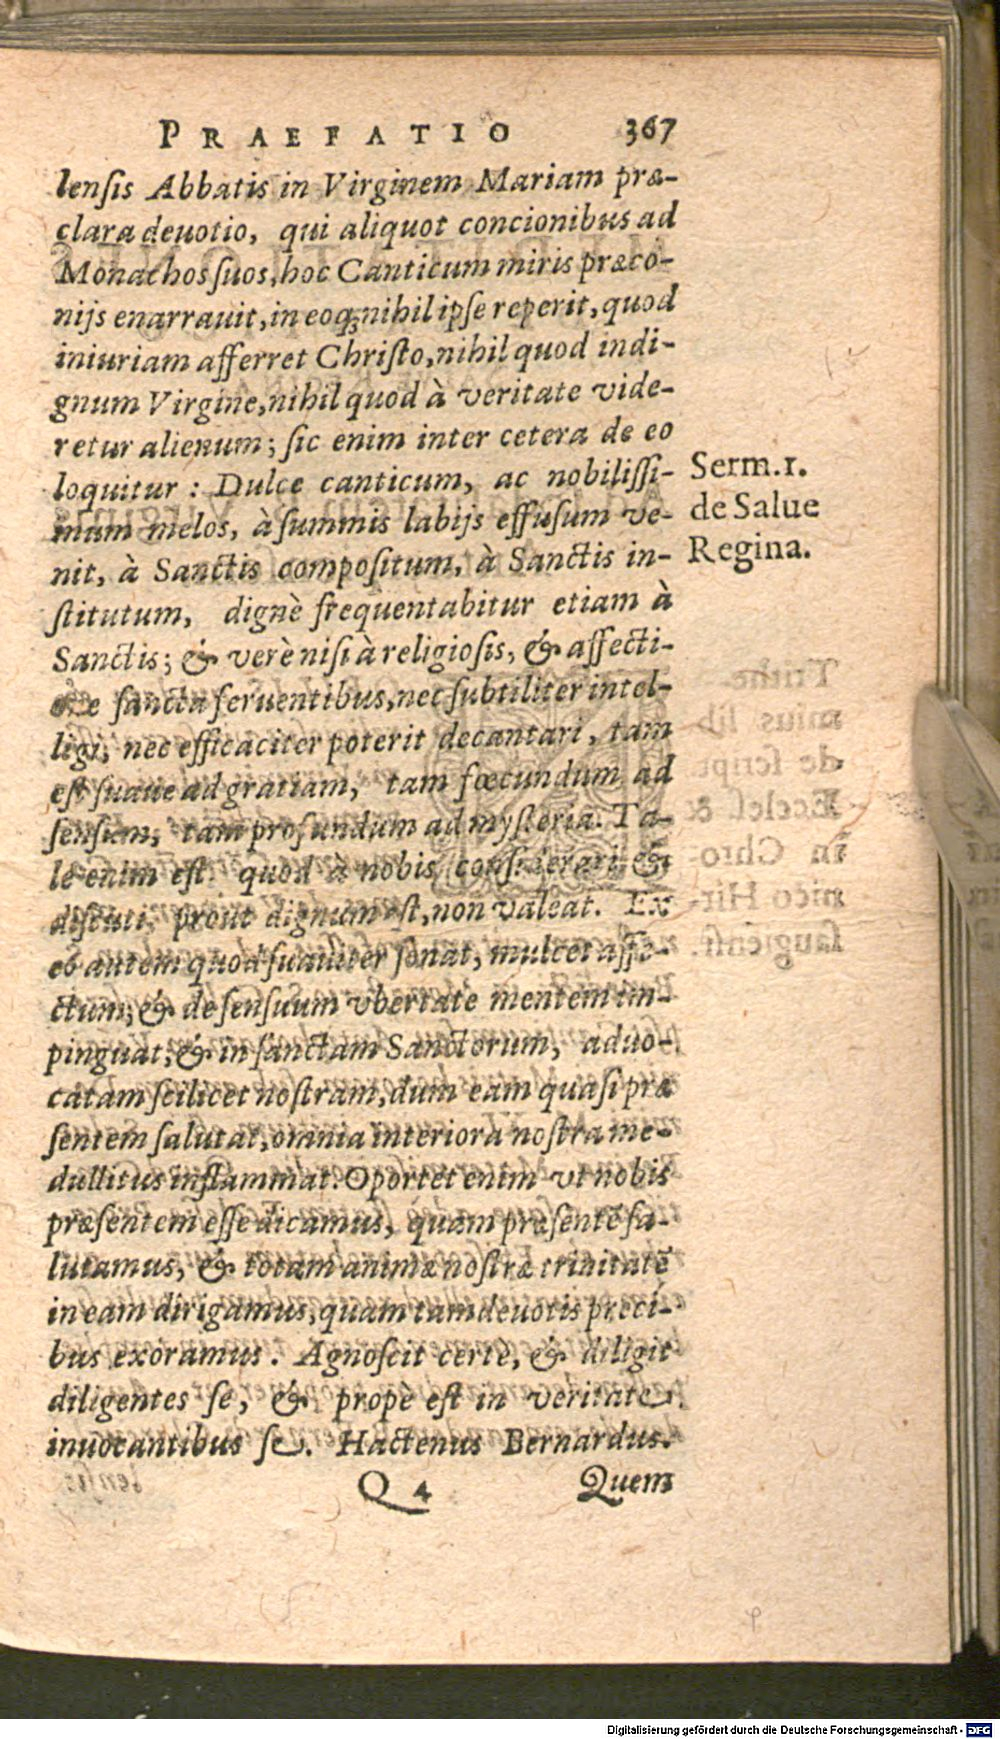 PRAEFATIO 367
lensis Abbatis in Virginem Mariam præ-
clara deuotio, qui aliquot concionibus ad
Monachos suos, hoc Canticum miris præco-
nijs enarrauit, in eoq; nihil ipse reperit, quod
iniuriam afferret Christo, nihil quod indi-
gnum Virgine, nihil quod à veritate vide-
retur alienum; sic enim inter cetera de eo
loquitur: Dulce canticum, ac nobilissi-
mum melos, à summis labijs effusum ve-
nit, à Sanctis compositum, à Sanctis in-
stitutum, dignè frequentabitur etiam à
Sanctis; & verè nisi à religiosis, & affecti-
one sancta feruentibus, nec subtiliter intel-
ligi, nec efficaciter poterit decantari, tam
est suaue ad gratiam, tam fœcundum ad
sensum, tam profundum ad mysteria. Ta-
le enim est quod à nobis considerari &
discuti, prout dignum est, non valeat. Ex
eo autem quod suauiter sonat, mulcet affe-
ctum; & de sensuum vbertate mentem im-
pinguat; & in sanctam Sanctorum, aduo-
catam scilicet nostram, dum eam quasi præ
sentem salutat, omnia interiora nostra me-
dullitus inflammat. Oportet enim vt nobis
præsentem esse dicamus, quam præsentē sa-
lutamus, & totam animæ nostræ trinitatē
in eam dirigamus, quam tam deuotis preci-
bus exoramus. Agnoscit certè, & diligit
diligentes se, & propè est in veritate
inuocantibus se. Hactenus Bernardus.
Q 4 Quem
Serm. 1.
de Salue
Regina.
Digitalisierung gefördert durch die Deutsche Forschungsgemeinschaft - DFG